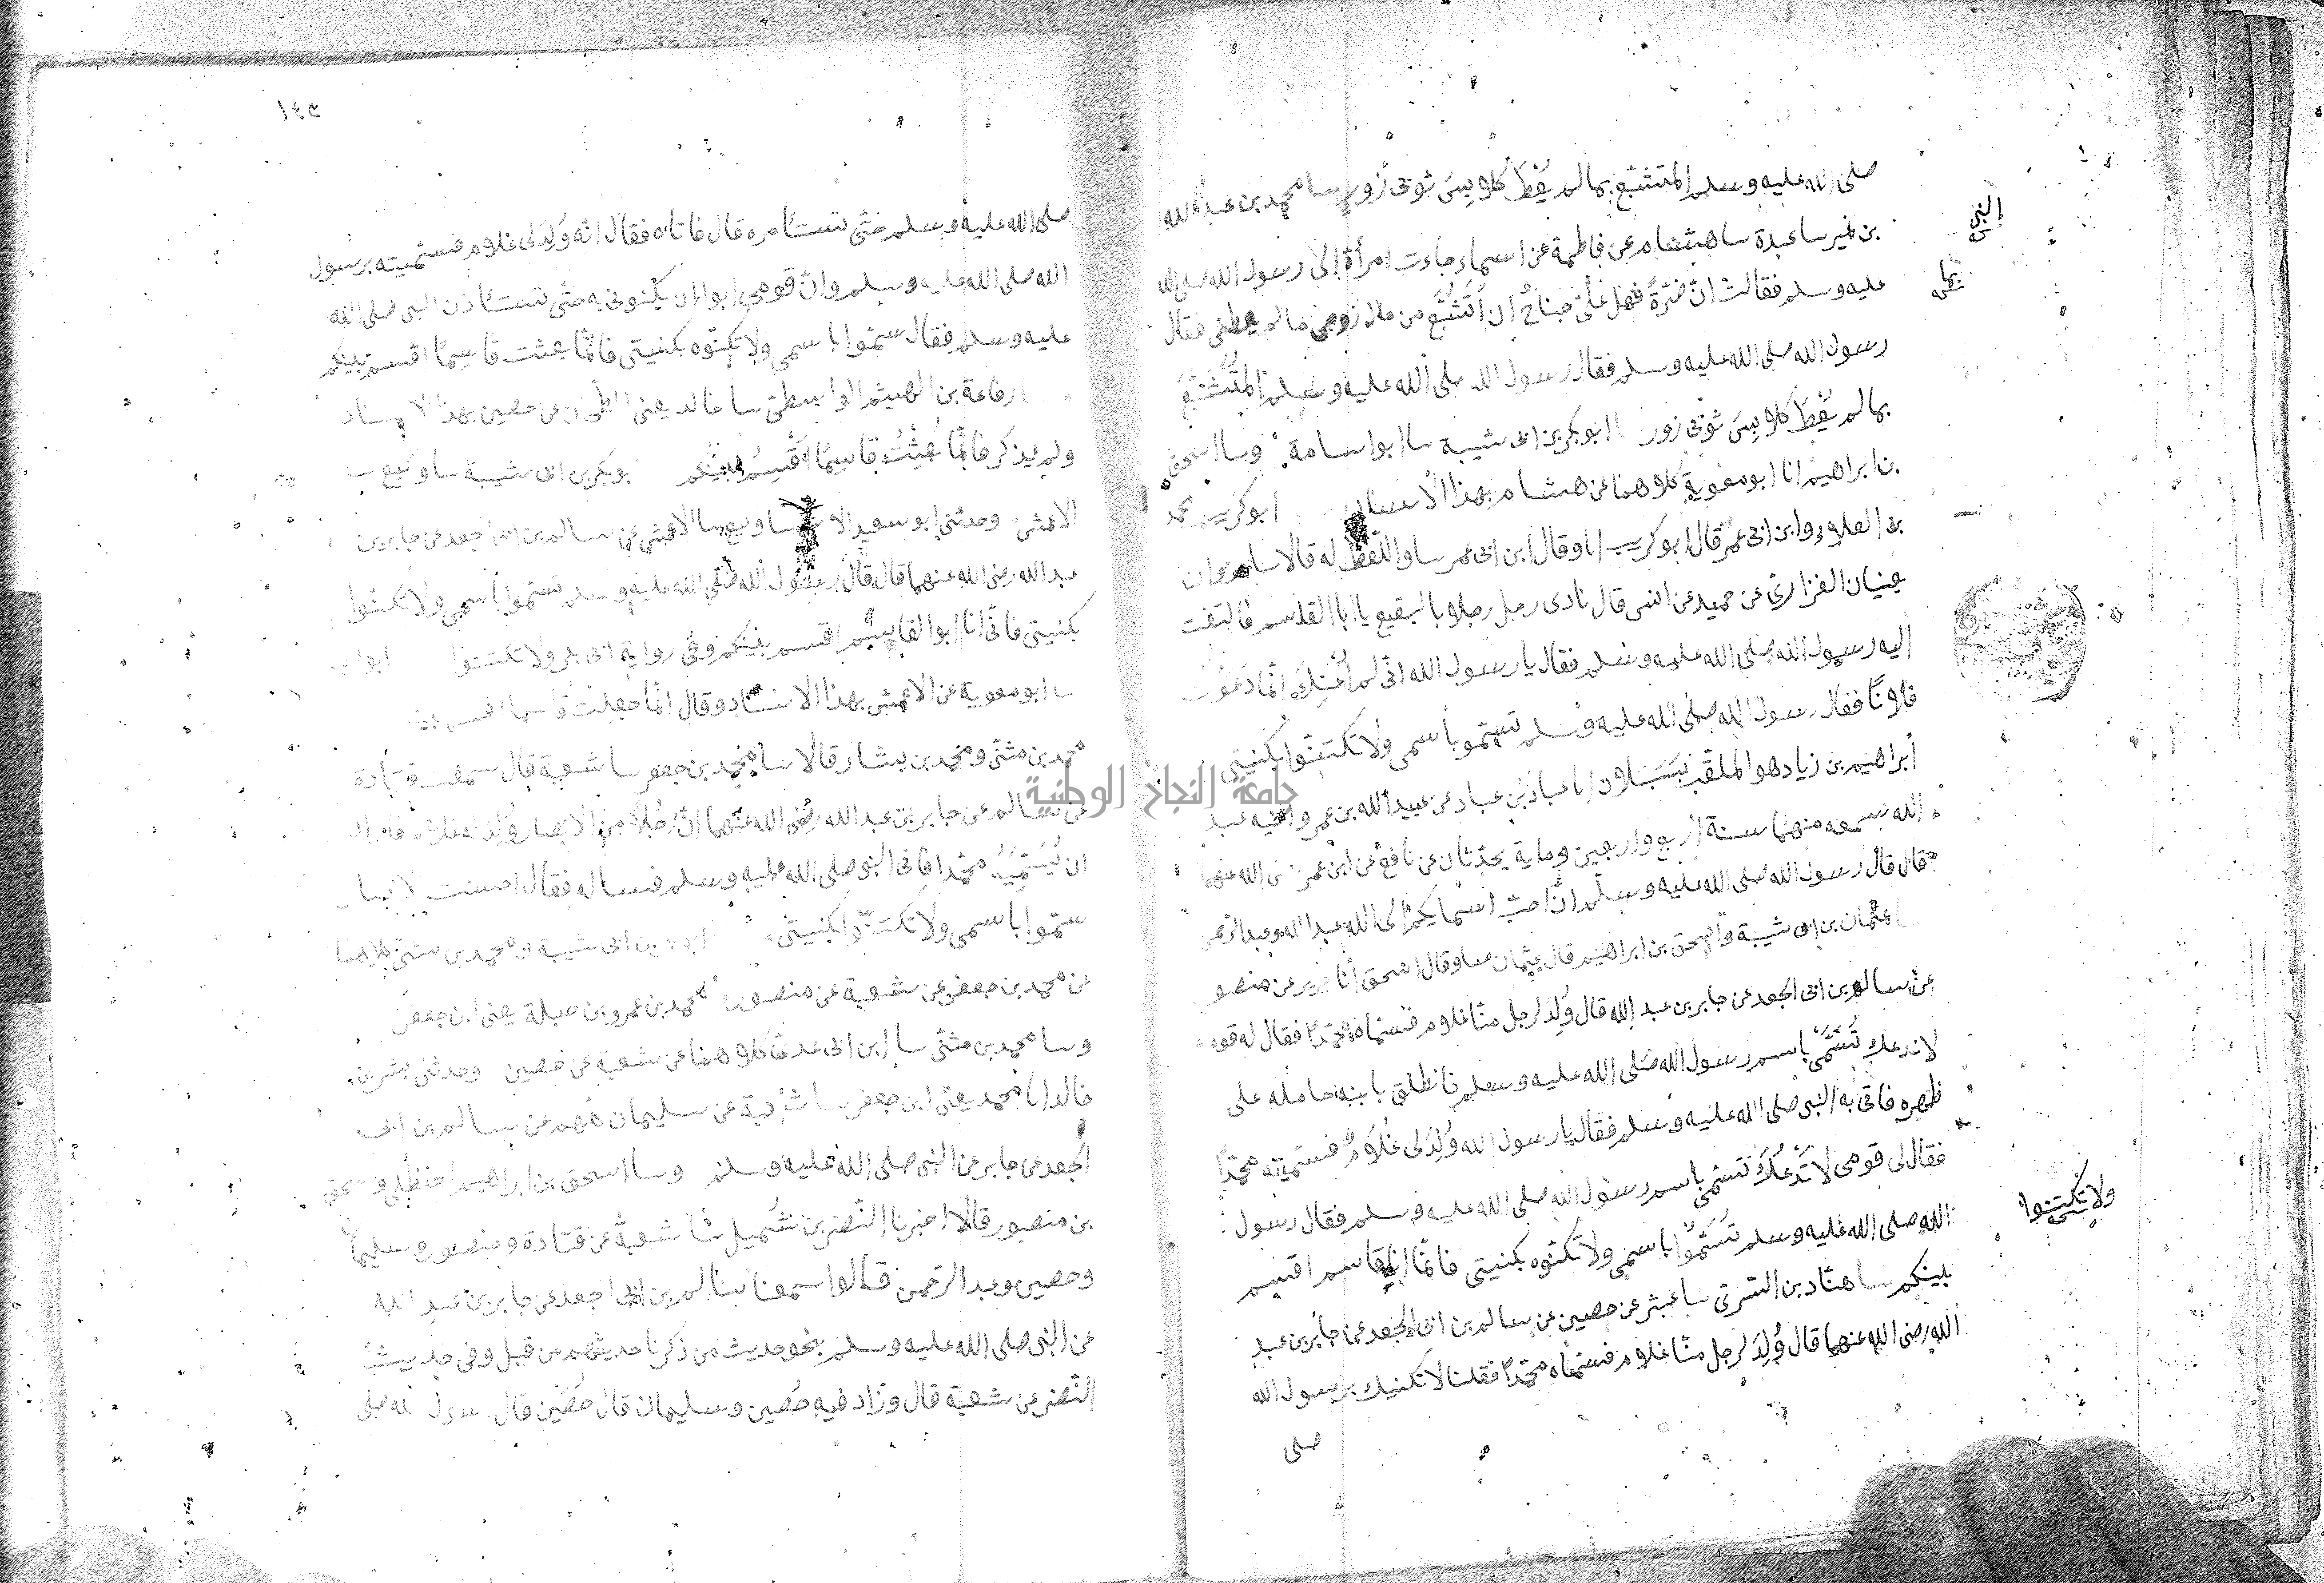 صلى الله عليه وسلم المتشبع بما لم يُعْطَ كلابِسِ ثوبى زور سا محمد بن عبد الله
النبى
بن نمير سا عبدة سا هشام عن فاطمة عن اسماء جاءت امرأة الى رسول الله صلى الله
عليه وسلم فقالت انّ ضَرّةً فهل علىّ جناحٌ ان اَتَشَبَّعَ من مال زوجى مالم يعطنى فقال
بما
رسول الله صلى الله عليه وسلم فقال رسول الله صلى الله عليه وسلم المُتَشَبِّعَ
بما لم يُعْطَ كلابِسِ ثوبى زور ابو بكر بن ابى شيبة سا ابو اسامة وسا اسحق
بن ابراهيم انا ابو معوية كلاهما عن هشام بهذا الاسناد ابو كريب محمد
بن العلاء وابن ابى عمر قال ابو كريب انا وقال ابن ابى عمر سا واللفظ له قالا سا مروان
يعنيان الفزارىّ عن حميد عن انس قال نادى رجل رجلا بالبقيع يا ابا القاسم فالتفت
اليه رسول الله صلى الله عليه وسلم فقال يا رسول الله انّى لم اَعْنِكَ انّما دَعَوْتُ
فلانًا فقال رسول الله صلى الله عليه وسلم تسّمو باسمى ولا تكتنوا بكنيتى
ابراهيم بن زياد هو الملقب بسَبَلان انا عباد بن عباد عن عبيد الله بن عمر واخيه عبد
الله سمعه منهما سنة اربع واربعين وماية يحدّثان عن نافع عن ابن عمر رضى الله عنهما
قال قال رسول الله صلى الله عليه وسلّم انّ احبّ اسمايكم الى الله عبد الله وعبد الرحمن
عثمان بن ابى شيبة واسحق بن ابراهيم قال عثمان سا وقال اسحق أنا جرير عن منصور
عن سالم بن ابى الجعد عن جابر بن عبد الله قال وُلِدَ لرجل منّا غلام فسمّاه محمّدًا فقال له قومه
لا ندعك تُسَمّى باسم رسول الله صَلى الله عليه وسلم فانطلق بابنه حامله على
ظهره فاتى به النبى صلى الله عليه وسلم فقال يا رسول الله وُلِدَ لى غُلَامٌ فسمّيته محمّدًا
فقال لى قومى لا نَدْعُكَ تسّمى باسم رسول الله صلى الله عليه وسلم فقال رسول
الله صلى الله عليه وسلم تَسَمُّوا باسمى ولا تكنّوه بكنيتى فانّما انا قاسم اقسم
ولا تكتنوا
بينكم سا هنّاد بن السّرى سا عبثر عن حصين عن سالم بن ابى الجعد عن جابر بن عبد
الله رضى الله عنهما قال وُلِدَ لرجل منّا غلام فسمّاه محمّدًا فقلنا لا نكنيك برسول الله
صلى
١٤٣
صلى الله عليه وسلم حتّى تستأمره قال فاتاه فقال انّه وُلِدَ لى غلام فسمّيته برسول
الله صلى الله عليه وسلم وانّ قومى ابوا ان يكنونى به حتّى تستأذن النبى صلى الله
عليه وسلم فقال سمّوا باسمى ولا تكنّوه بكنيتى فانّما بعثت قاسِمًا اقسم بينكم
رفاعة بن الهيثم الواسطىّ سا خالد يعنى الطحّان عن حصين بهذا الاسناد
ولم يذكر فانّما بُعِثْتُ قاسِمًا اَقْسِمُ بينكم ابو بكر بن ابى شيبة سا وكيع
الاعمش وحدثنى ابو سعيد الاشج سا وكيع سا الاعمش عن سالم بن ابى الجعد عن جابر بن
عبد الله رضى الله عنهما قال قال رسول الله صلّى الله عليه وسلم تسّموا باسمى ولا تكنّوا
بكنيتى فانّى انا ابو القاسم اقسم بينكم وفى رواية ابى بكر ولا تكتنوا ابو
سا ابو معوية عن الاعمش بهذا الاسناد وقال انّما جُعِلتُ قاسما اقسم
محمد بن مثنّى ومحمد بن بشار قالا سا محمد بن جعفر سا شعبة قال سمعت قتادة
عن سالم عن جابر بن عبد الله رضى الله عنهما انّ رجُلًا من الانصار وُلِدَ له غلام فاراد
ان يُسَمِّيَهُ محمّدا فاتى النبى صلى الله عليه وسلم فساله فقال احسنت الانصار
سمّوا باسمى ولا تكتنّوا بكنيتى بن ابى شيبة ومحمد بن مثنى كلاهما
عن محمد بن جعفر عن شعبة عن منصور محمد بن عمرو بن جبلة يعنى ابن جعفر
وسا محمد بن مثنّى سا ابن ابى عدىّ كلاهما عن شعبة عن حصين وحدثنى بشر بن
خالد انا محمد يعنى ابن جعفر سا شعبة عن سليمان كلهم عن سالم بن ابى
الجعد عن جابر عن النبى صلى الله عليه وسلم وسا اسحق بن ابراهيم الحنظلى واسحق
بن منصور قالا اخبرنا النّضر بن شُميل سا شعبة عن قتادة ومنصور وسليمان
وحصين وعبد الرّحمن قالوا سمعنا سالم بن ابى الجعد عن جابر بن عبد الله
عن النبى صلى الله عليه وسلم بنحو حديث من ذكرنا حديثهم من قبل وفى حديث
النّضر عن شعبة قال وزاد فيه حُصين وسليمان قال حُصَين قال رسول الله صلى
جامعة النجاح الوطنية